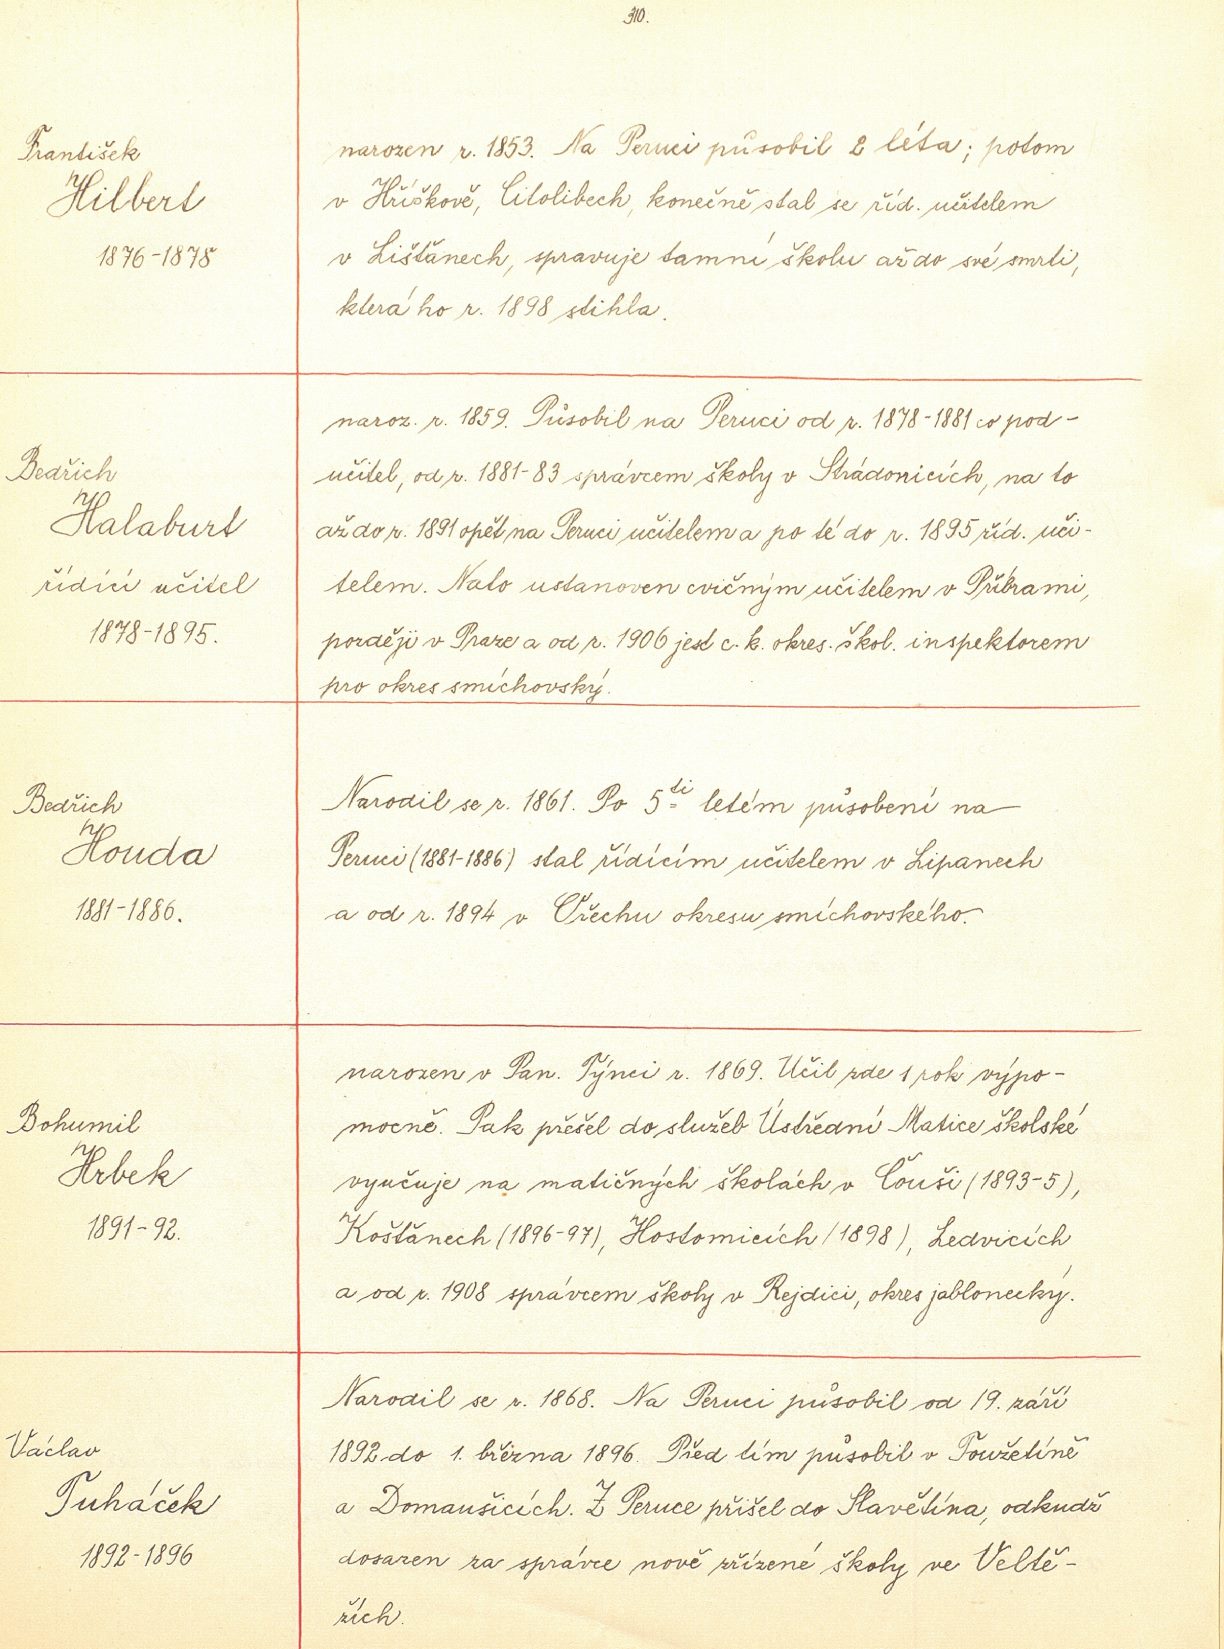 310.
František
Hilbert
1876-1878
narozen r. 1853. Na Peruci působil 2 léta; potom
v Hříškově, Citolibech, konečně stal se říd. učitelem
v Lišťanech, spravuje tamní školu až do své smrti,
která ho r. 1898 stihla.
Bedřich
Halaburt
řídící učitel
1878-1895.
naroz. r. 1859. Působil na Peruci od r. 1878-1881 co pod-
učitel, od r. 1881-83 správcem školy v Strádonicích, na to
až do r. 1891 opět na Peruci učitelem a po té do r. 1895 říd. uči-
telem. Nato ustanoven cvičným učitelem v Příbrami,
později v Praze a od r. 1906 jest c. k. okres. škol. inspektorem
pro okres smíchovský.
Bedřich
Houda
1881-1886.
Narodil se r. 1861. Po 5ti letém působení na
Peruci (1881-1886) stal řídícím učitelem v Lipanech
a od r. 1894 v Ořechu okresu smíchovského.
Bohumil
Hrbek
1891-92.
narozen v Pan. Týnci r. 1869. Učil zde 1 rok výpo-
mocně. Pak přešel do služeb Ústřední Matice školské
vyučuje na matičných školách v Čouši (1893-5),
Košťanech (1896-97), Hostomicích (1898), Ledvicích
a od r. 1908 správcem školy v Rejdici, okres jablonecký.
Václav
Tuháček
1892-1896
Narodil se r. 1868. Na Peruci působil od 19. září
1892 do 1. března 1896. Před tím působil v Toužetíně
a Domaušicích. Z Peruce přišel do Slavětína, odkudž
dosazen za správce nově zřízené školy ve Veltě-
žích.